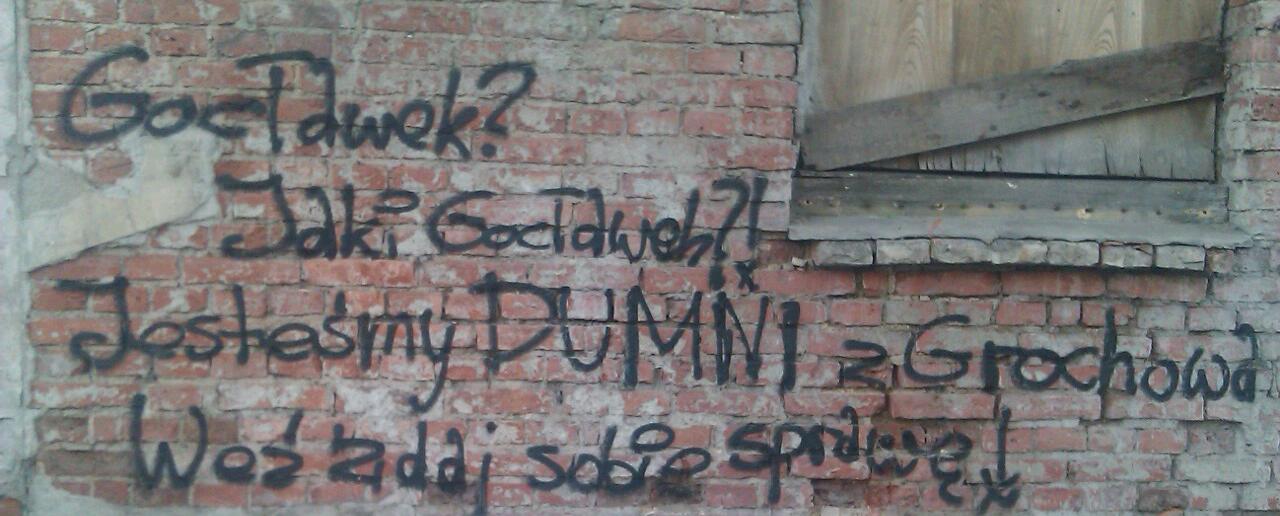 Gocławek?
Jaki Gocławek?!
Jesteśmy DUMNI z Grochowa
Weź zidaj sobie sprawę!